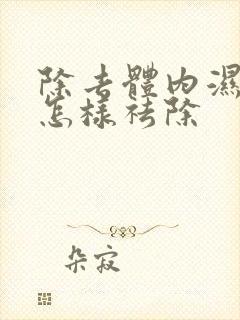 除去體內濕
怎樣祛除
朵寂